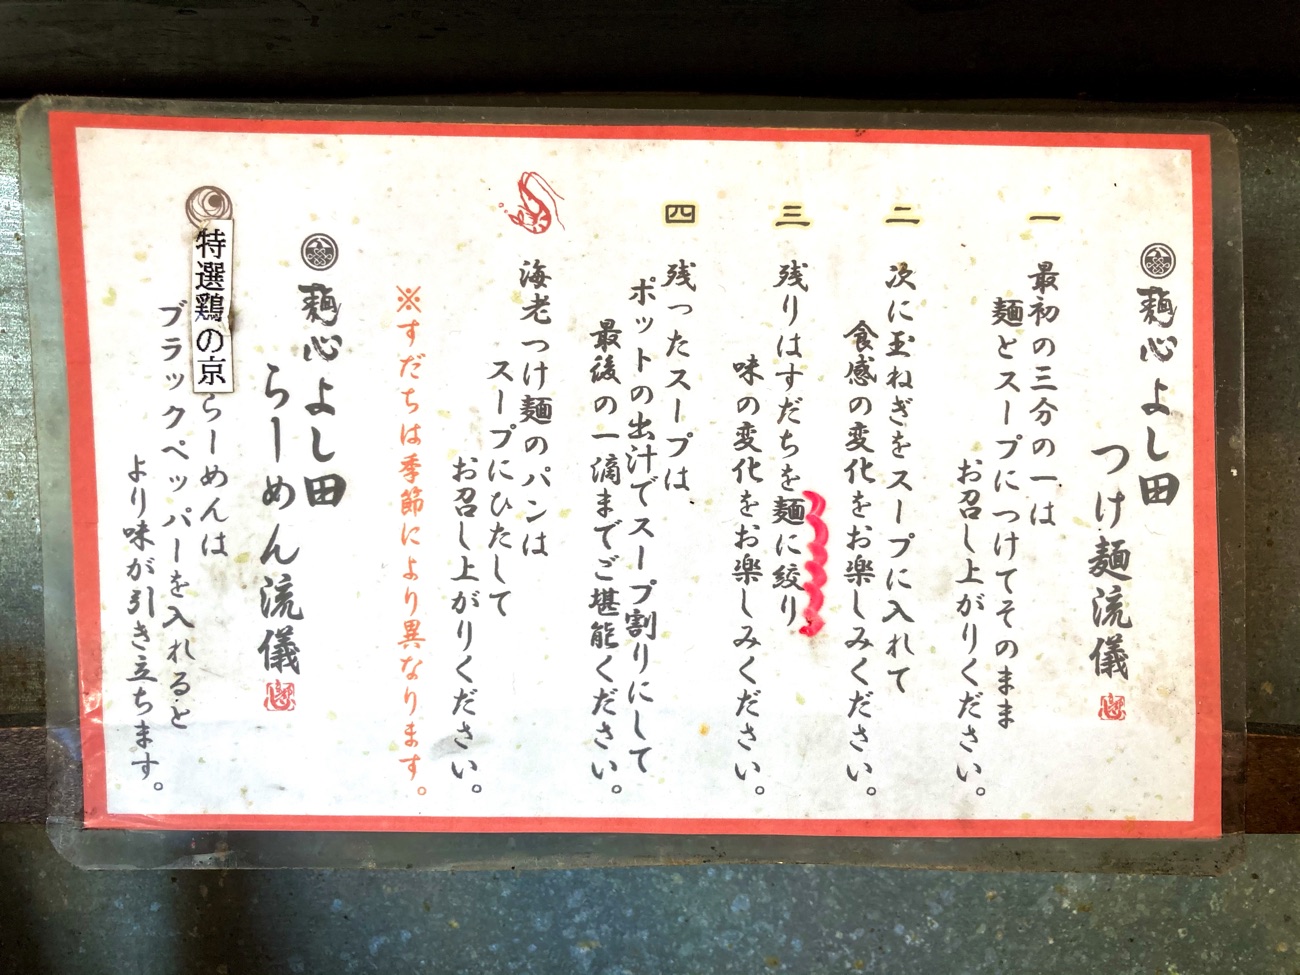 麺心よし田
つけ麺流儀
一
最初の三分の一は
麺とスープにつけてそのまま
お召し上がりください。
二
次に玉ねぎをスープに入れて
食感の変化をお楽しみください。
三
残りはすだちを麺に絞り
味の変化をお楽しみください。
四
残ったスープは
ポットの出汁でスープ割りにして
最後の一滴までご堪能ください。
海老つけ麺のパンは
スープにひたして
お召し上がりください。
※すだちは季節により異なります。
麺心よし田
らーめん流儀
特選鶏の京らーめんは
ブラックペッパーを入れると
より味が引き立ちます。